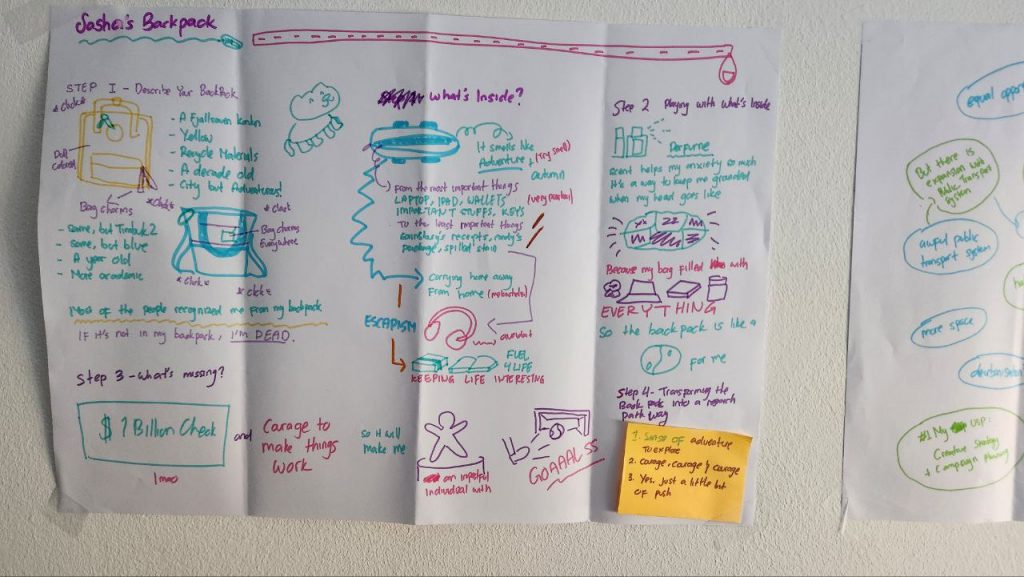 Sasha's Backpack
STEP 1 - Describe Your BackPack
*click*
Dull
Colored
Bag charms
*click*
- A Fjallraven kanken
- Yellow
- Recycle Materials
- A decade old
- City but Adventurous!
- Same, but Timbuk2
- Same, but blue
- A year old
- More academic
*click*
Bag charms
Everywhere
*click*
*click*
Most of the people recognized me from my backpack
IF it's not in my backpack, I'M DEAD.
What's Inside?
It smells like
Adventure +
autumn
(very
From the most important things
LAPTOP, IPAD, WALLETS
IMPORTANT STUFFS, KEYS
(very
To the least important things
Sainsbury's receipts,
package, spilled stain
Carrying home away
From home
ESCAPISM
FUEL
4 LIFE
KEEPING LIFE INTERESTING
Step 2 Playing with what's Inside
Perfume
Scent helps my anxiety so much
It's a way to keep me grounded
when my head goes like
zz
Because my bag filled with
EVERYTHING
So the backpack is like a
for me
Step 3 - What's missing?
$ 1 Billion Check
lmao
and
Carage to
make things
WORK
so it will
make me
an
Individual with
GOAAALSS
Step 4- Transforming the
Back pack into a research
Path way
1. Sense of adventure
to explore
2. Carage, Carage & Carage
3. Yes, just a little bit
of push
equal
But there is
expansion with
Public transport
system
awful public
transport system
more space
#1 My USP:
Creative Strategy
+ Campaign Planning